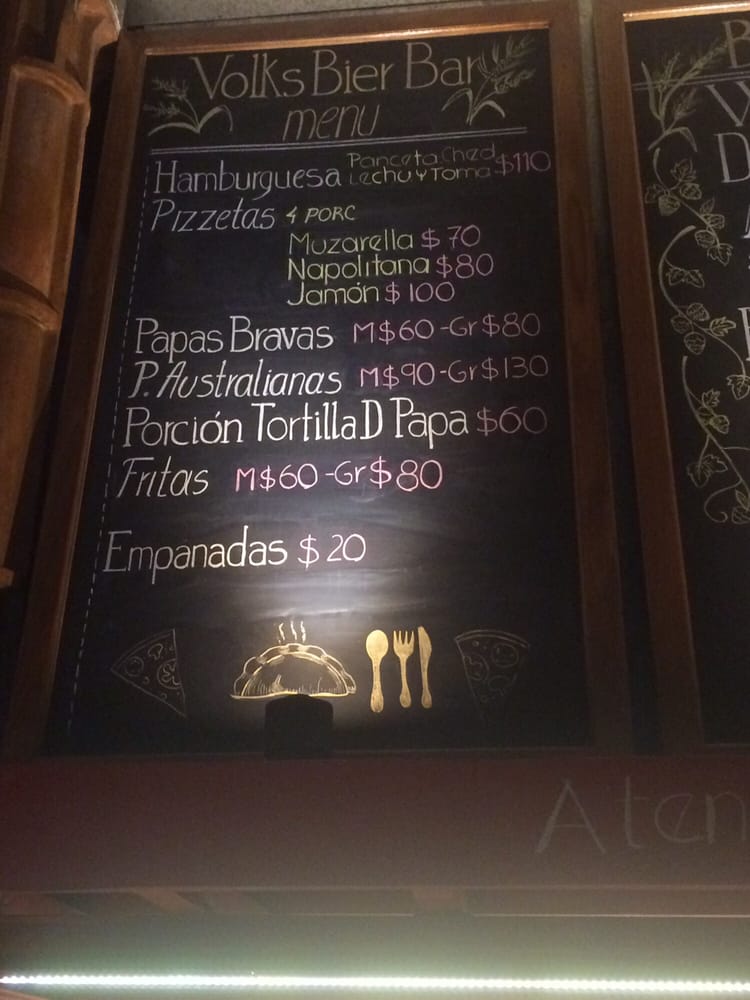 Volks Bier Bar
menu
Hamburguesa Panceta, Ched $110
Lechu y Toma
Pizzetas 4 PORC
Muzarella $70
Napolitana $80
Jamón $100
Papas Bravas M$60-Gr$80
P. Australianas M$90-Gr$130
Porción Tortilla D Papa $60
Fritas M$60-Gr$80
Empanadas $20
Aten